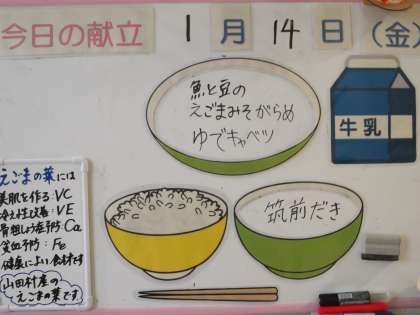 今日の献立 1月14日(金)
魚と豆の
えごまみそがらめ
ゆでキャベツ
牛乳
筑前だき
えごまの葉には
美肌を作る:VC
冷え性改善:VE
骨粗しょう症予防:Ca
貧血予防:Fe
健康によい食材です
山田村産の
えごまの葉です